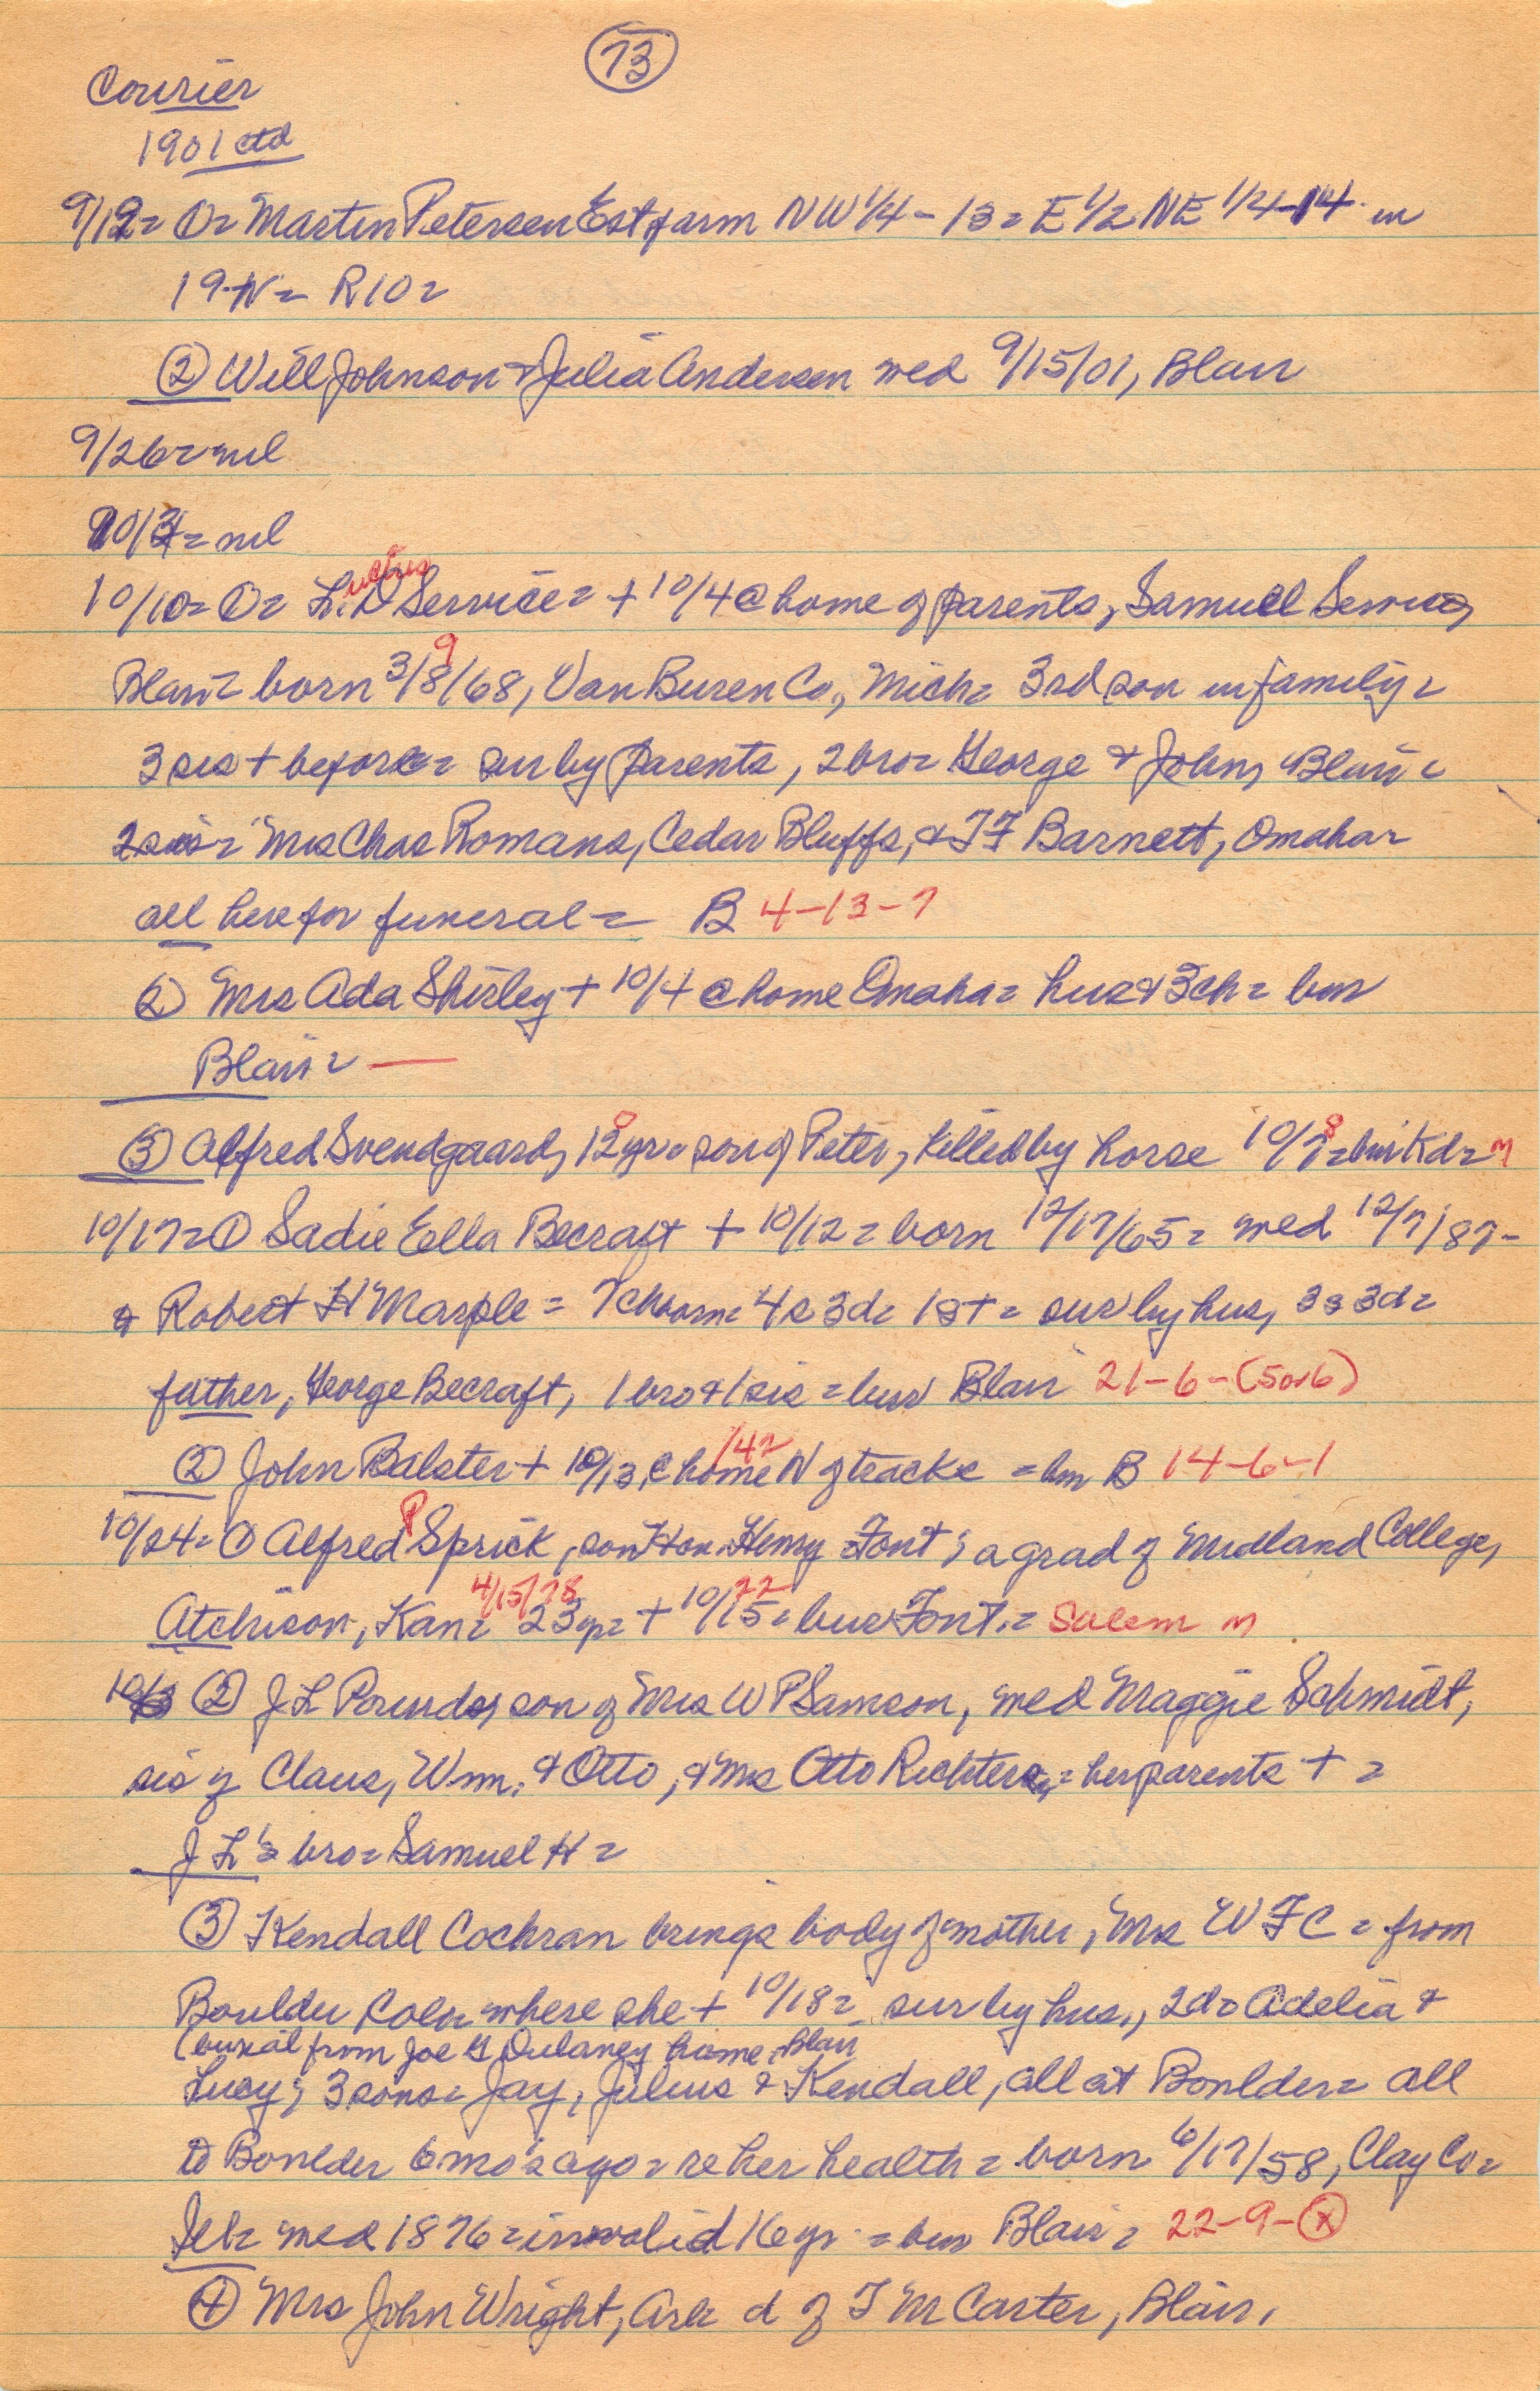 73
Courier
1901 ctd
9/12= ①= Martin Petersen Est farm NW 1/4 - 13 = E 1/2 NE 1/4-14 in
19-N= R10=
② Will Johnson & Julia Andersen med 9/15/01, Blair
9/26= nil
10/3= nil
uctus
10/10= ①= L. D Service= + 10/4 @ home of parents, Samuel Service,
9
Blair= born 3/8/68, Van Buren Co., Mich= 3rd son in family=
3 sis + before= sur by parents, 2 bro= George & John, Blair=
2 sis= Mrs Chas Romans, Cedar Bluffs, & T F Barnett, Omaha=
all here for funeral= B 4-13-7
② Mrs Ada Shirley + 10/4 @ home Omaha= hus & 3 ch= bur
Blair= —
③ Alfred Svendgaard, 12 yr= son of Peter, killed by horse 10/7= bur Kd= m
10/17= ① Sadie Ella Becraft + 10/12= born 12/17/65= med 12/7/87-
& Robert H Marple = 7 ch born= 4s 3d= 1s+= sur by hus, 3s 3d=
father, George Becraft, 1 bro & 1 sis = bur Blair 21-6-(5or6)
② John Balster + 10/13, @ home N of tracks = bur B 14-6-1
P
10/24= ① Alfred Sprick, son Hon. Henry= Font; a grad of Midland College,
4/15/78 22
Atchison, Kan= 23 yr= + 10/15= bur Font.= Salem m
② J L Pounds, son of Mrs W P Samson, med Maggie Schmidt,
sis of Claus, Wm. & Otto, & Mrs Otto Richters,= her parents + =
J L's bro= Samuel H=
③ Kendall Cochran brings body of mother, Mrs W F C = from
Boulder Colo= where she + 10/18= sur by hus., 2d= Adelia &
(burial from Joe G Dulaney home, Blair
Lucy; 3 sons= Jay, Julius & Kendall, all at Boulder= all
to Boulder 6 mo's ago= re her health = born 6/17/58, Clay Co=
Ill= med 1876= invalid 16 yr = bur Blair= 22-9-(x)
④ Mrs John Wright, Ark d of T M Carter, Blair,